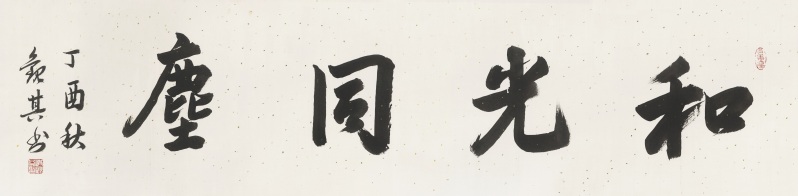 和光同塵
丁酉秋
其书